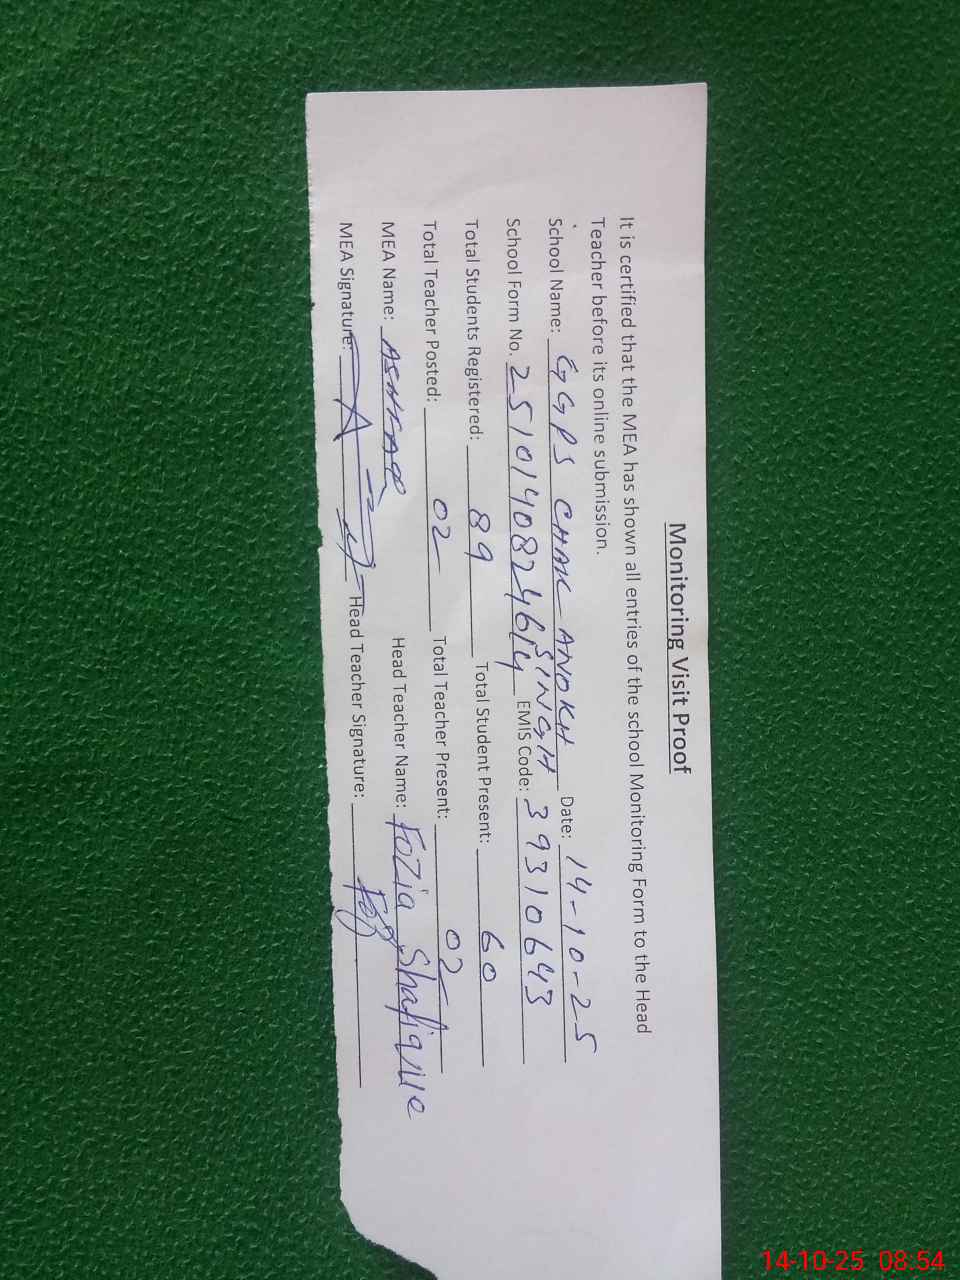 Monitoring Visit Proof
It is certified that the MEA has shown all entries of the school Monitoring Form to the Head
Teacher before its online submission.
School Name: GGPS CHAK ANOKH SINGH Date: 14-10-25
School Form No. 2510140824614 EMIS Code: 39310643
Total Students Registered: 89 Total Student Present: 60
Total Teacher Posted: 02 Total Teacher Present: 02
MEA Name: Head Teacher Name: Fozia Shafique
MEA Signature: Head Teacher Signature:
14-10-25 08:54